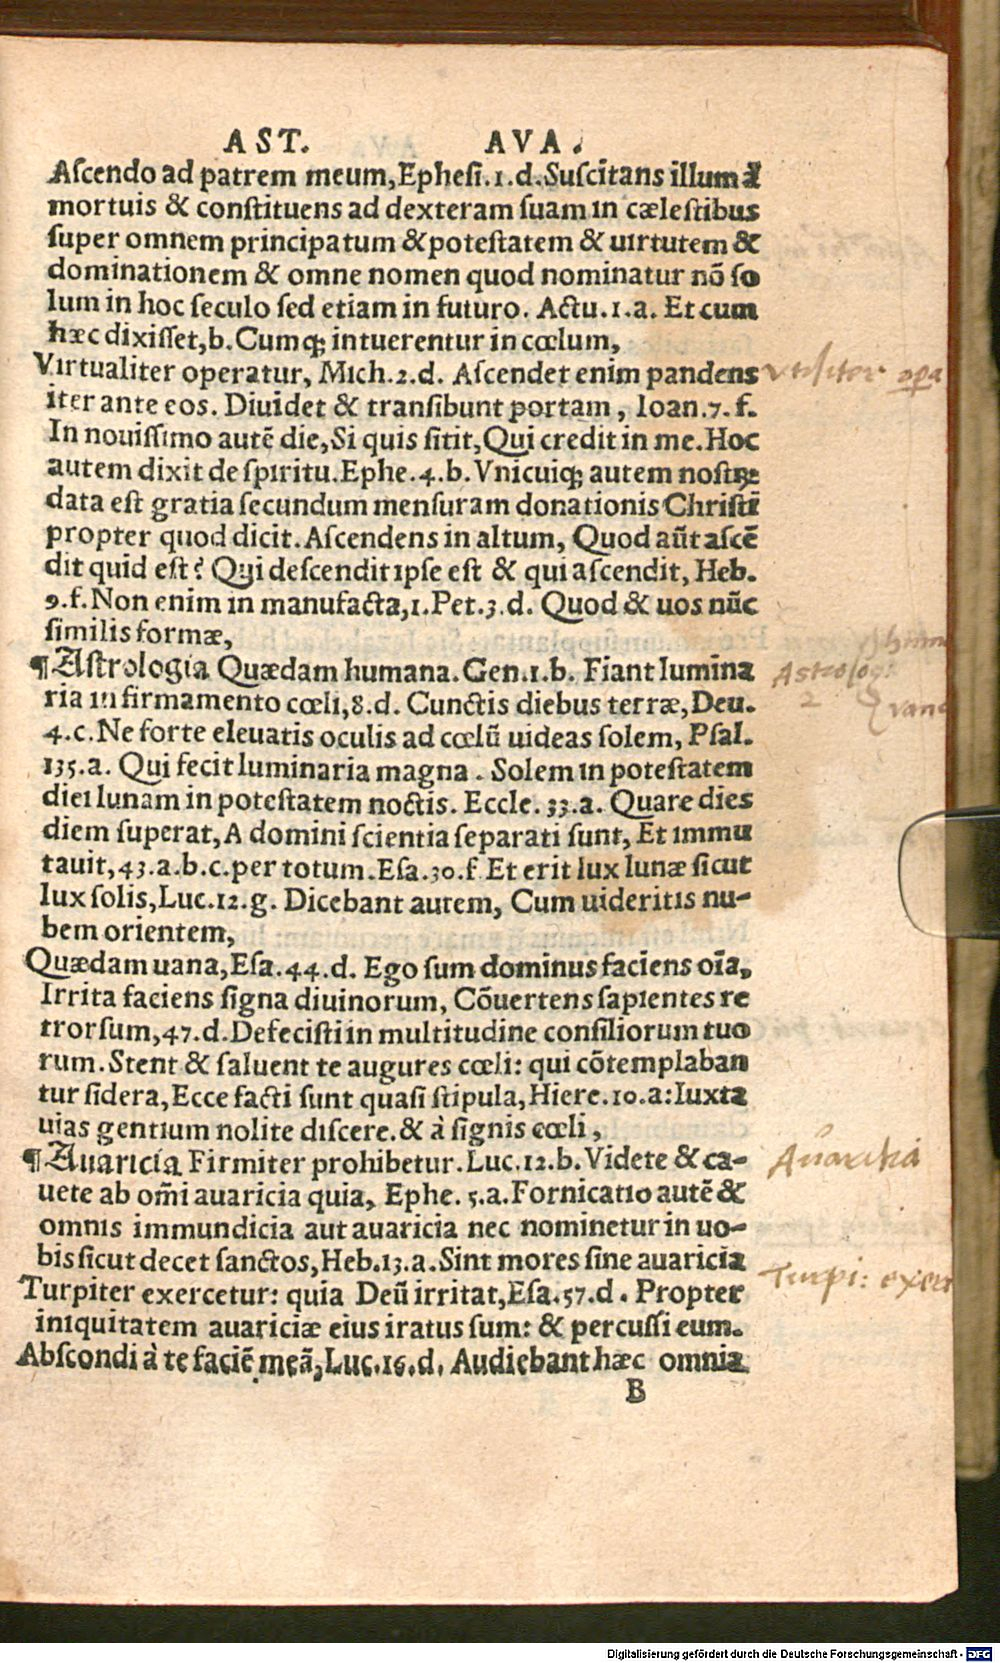 AST. AVA.
Aſcendo ad patrem meum,Epheſi.1.d.Suſcitans illum à
mortuis & conſtituens ad dexteram ſuam in cæleſtibus
ſuper omnem principatum &poteſtatem & uirtutem &
dominationem & omne nomen quod nominatur nõ ſo
lum in hoc ſeculo ſed etiam in futuro. Actu.1.a. Et cum
hæc dixiſſet,b. Cumq; intuerentur in cœlum,
Virtualiter operatur, Mich.2.d. Aſcendet enim pandens
iter ante eos. Diuidet & tranſibunt portam, Ioan.7.f.
In nouiſſimo autẽ die,Si quis ſitit,Qui credit in me.Hoc
autem dixit de ſpiritu.Ephe.4.b. Vnicuiq; autem noſtꝝ
data eſt gratia ſecundum menſuram donationis Chriſti
propter quod dicit.Aſcendens in altum, Quod aũt aſcẽ
dit quid eſt? Qui deſcendit ipſe eſt & qui aſcendit, Heb.
9.f.Non enim in manufacta,1.Pet.3.d. Quod & uos nũc
ſimilis formæ,
¶Aſtrologia Quædam humana.Gen.1.b. Fiant lumina
ria in firmamento cœli,8.d. Cunctis diebus terræ,Deu.
4.c.Ne forte eleuatis oculis ad cœlũ uideas ſolem, Pſal.
135.a. Qui fecit luminaria magna. Solem in poteſtatem
diei lunam in poteſtatem noctis. Eccle.33.a. Quare dies
diem ſuperat,A domini ſcientia ſeparati ſunt, Et immu
tauit,43.a.b.c.per totum.Eſa.30.f Et erit lux lunæ ſicut
lux ſolis,Luc.12.g. Dicebant autem, Cum uideritis nu-
bem orientem,
Quædam uana,Eſa.44.d. Ego ſum dominus faciens oĩa,
Irrita faciens ſigna diuinorum, Cõuertens ſapientes re
trorſum,47.d.Defeciſti in multitudine conſiliorum tuo
rum.Stent & ſaluent te augures cœli: qui cõtemplaban
tur ſidera,Ecce facti ſunt quaſi ſtipula,Hiere.10.a:Iuxta
uias gentium nolite diſcere.& à ſignis cœli,
¶Auaricia Firmiter prohibetur.Luc.12.b.Videte & ca-
uete ab om̃i auaricia quia, Ephe.5.a.Fornicatio autẽ &
omnis immundicia aut auaricia nec nominetur in uo-
bis ſicut decet ſanctos,Heb.13.a.Sint mores ſine auaricia
Turpiter exercetur: quia Deũ irritat,Eſa.57.d. Propter
iniquitatem auariciæ eius iratus ſum: & percuſſi eum.
Abſcondi à te faciẽ meã,Luc.16.d. Audiebant hæc omnia
B
Astrolog:
2
vana
Auaritia
Turpi: exer
Digitalisierung gefördert durch die Deutsche Forschungsgemeinschaft - DFG